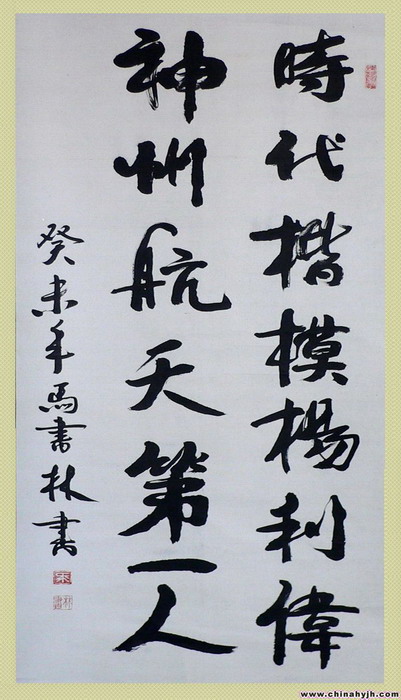 時代楷模楊利偉
神州航天第一人
癸未年馬書林書
www.chinahyjh.com